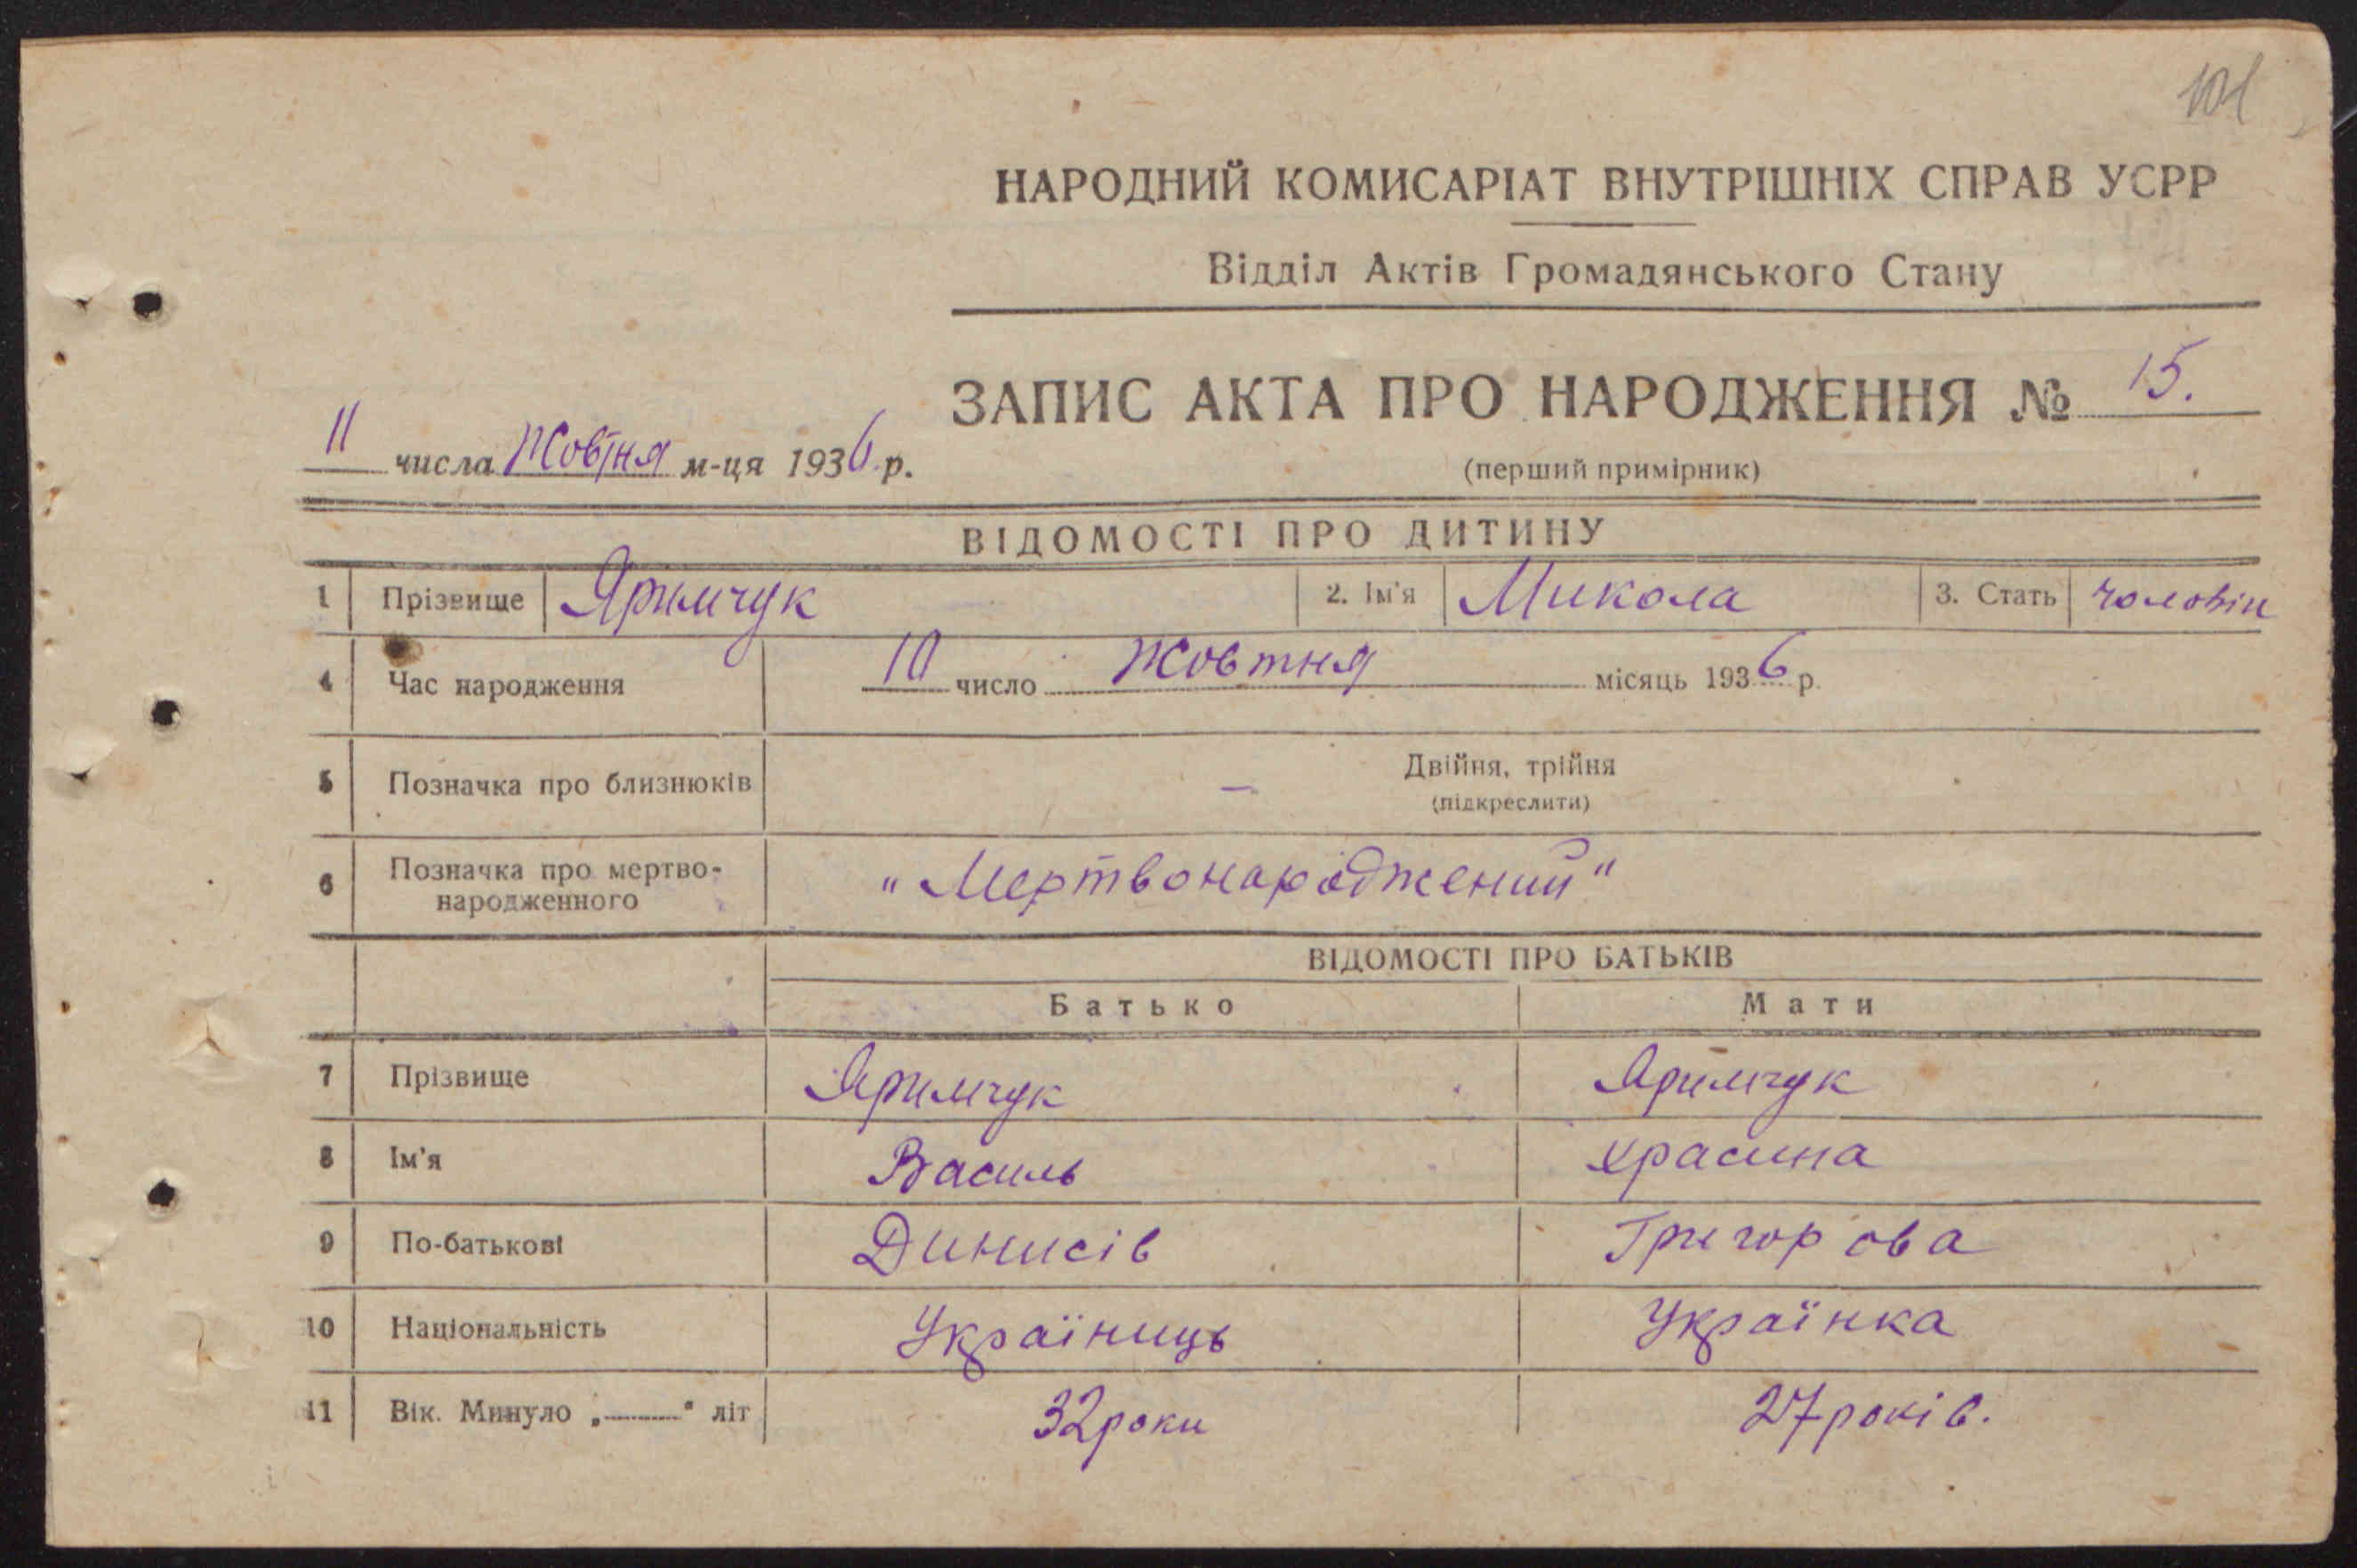 101
НАРОДНИЙ КОМИСАРІАТ ВНУТРІШНІХ СПРАВ УСРР
Відділ Актів Громадянського Стану
ЗАПИС АКТА ПРО НАРОДЖЕННЯ № 15.
11 числа Жовтня м-ця 1936 р.
(перший примірник)
ВІДОМОСТІ ПРО ДИТИНУ
1 Прізвище Яримчук 2. Ім'я Микола 3. Стать чоловік
4 Час народження 10 число Жовтня місяць 1936 р.
5 Позначка про близнюків — Двійня, трійня
(підкреслити)
6 Позначка про мертво-
народженного "Мертвонароджений"
ВІДОМОСТІ ПРО БАТЬКІВ
Батько Мати
7 Прізвище Яримчук Яримчук
8 Ім'я Василь
9 По-батькові Динисів Григорова
10 Національність Україниць Українка
11 Вік. Минуло „——" літ 32 роки 27 років.